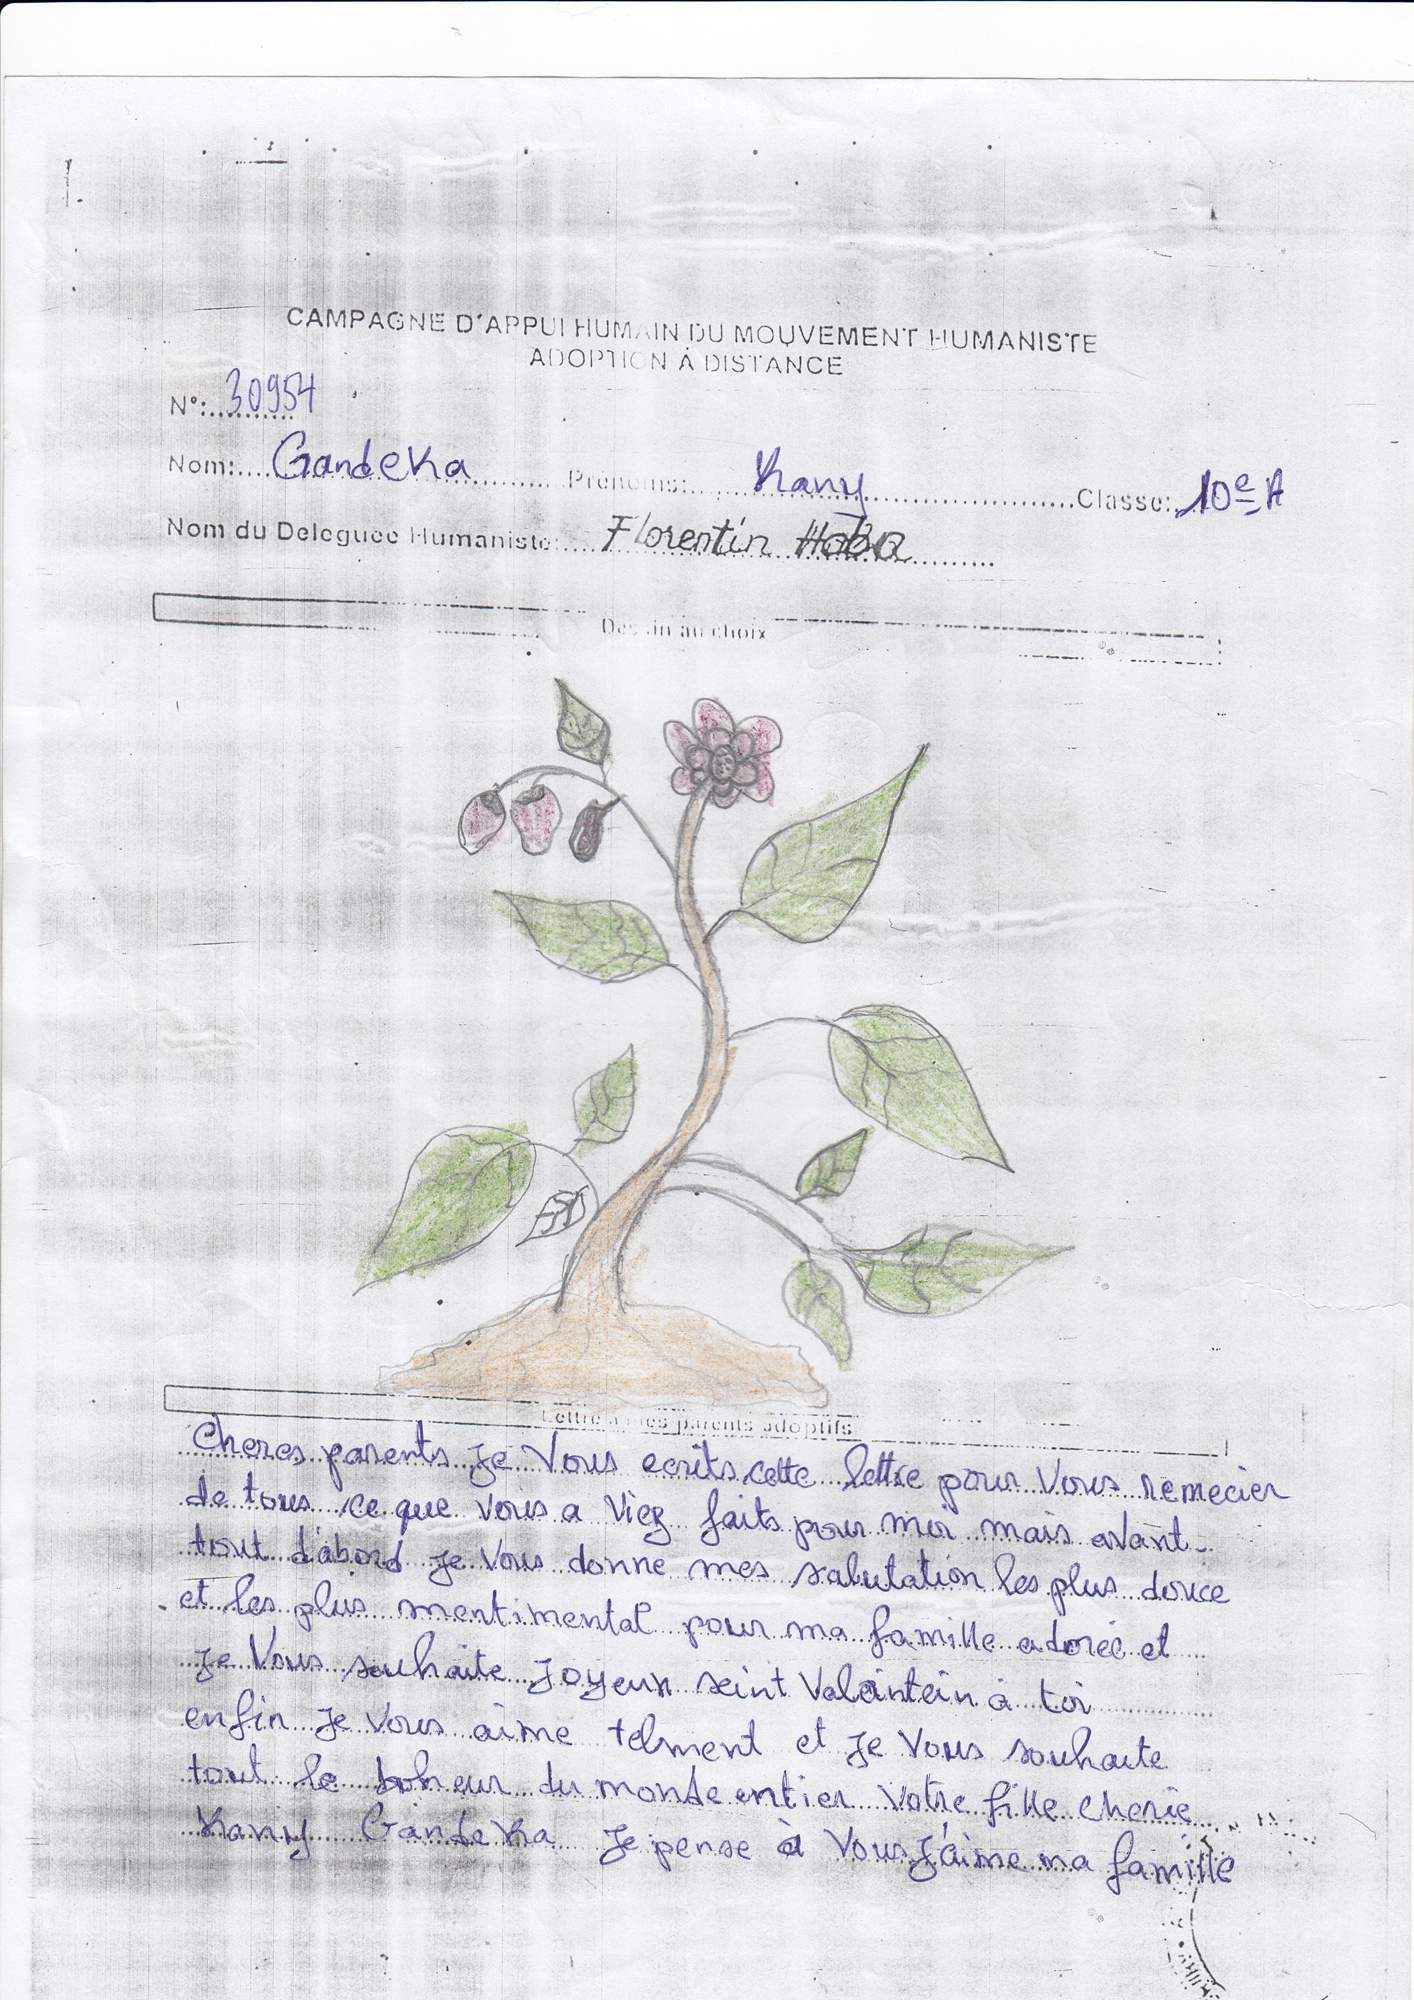 CAMPAGNE D'APPUI HUMAIN DU MOUVEMENT HUMANISTE
ADOPTION À DISTANCE
N°: 30954
Nom: Gandeka Prénoms: Kany Classe: 10e A
Nom du Déléguée Humaniste: Florentin Haba
Dessin au choix
Lettre à mes parents adoptifs
Cheres parents je vous ecrits cette lettre pour vous remecier
de tous ce que vous a viez faits pour moi mais avant
tout d'abord je vous donne mes salutation les plus douce
et les plus mentimental pour ma famille adorée et
je vous souhaite joyeux seint Valaintein à toi
enfin je vous aime telment et je vous souhaite
tout le bonheur du monde entier votre fille cherie
Kany Gandeka je pense à vous j'aime ma famille